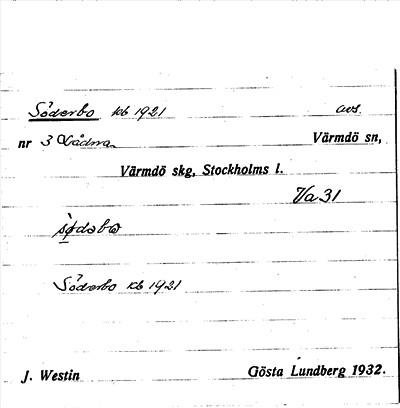 Söderbo kb 1921 avs.
nr 3 Lådna Värmdö sn,
Värmdö skg, Stockholms l.
Va 31
Söderbo kb 1921
J. Westin Gösta Lundberg 1932.